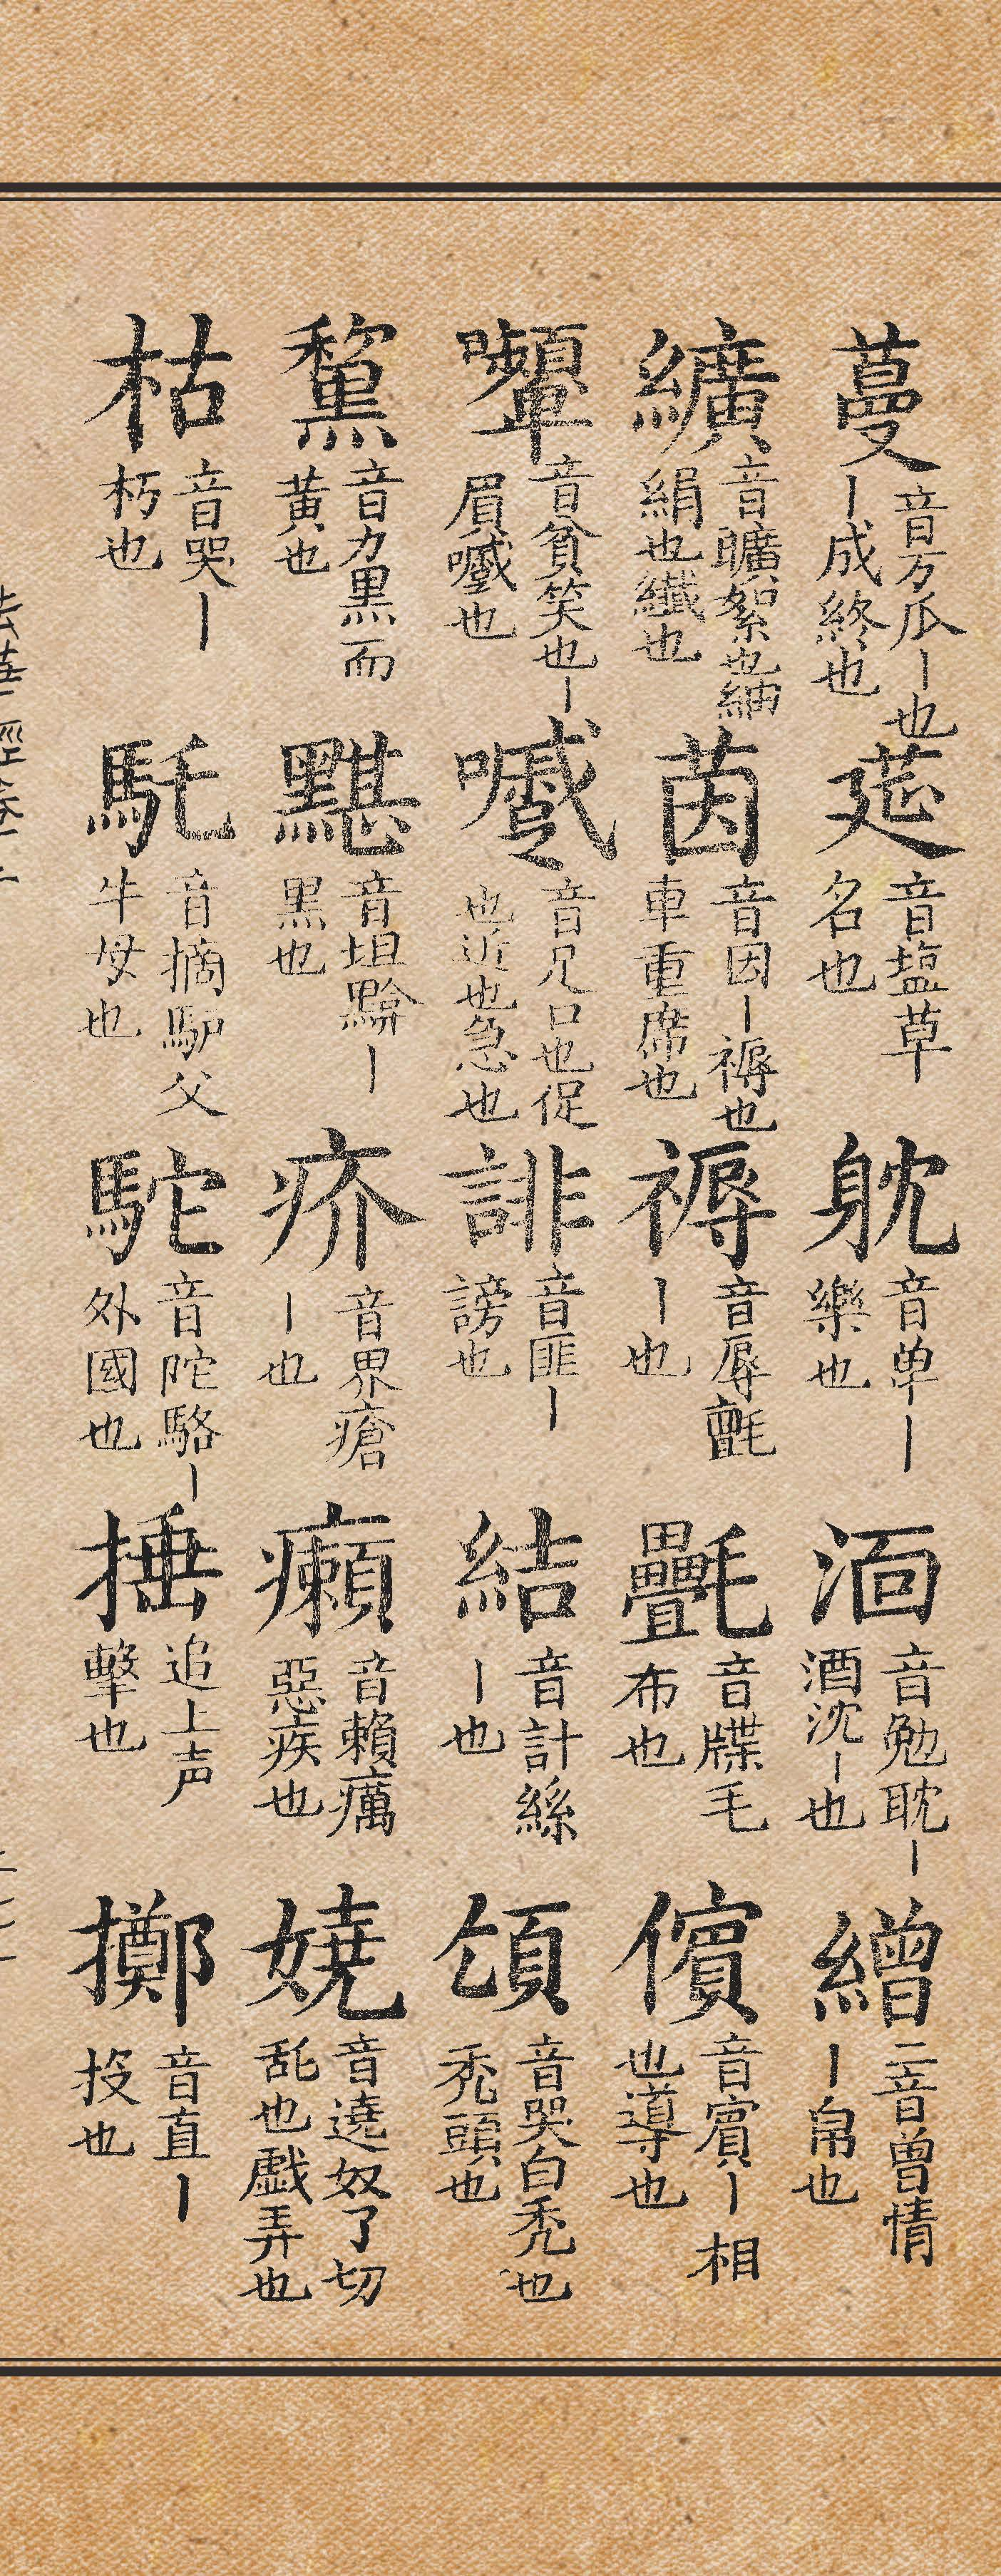 蔓音万瓜丨也丨成終也莚音塩草名也躭音单丨樂也湎音勉耽丨酒沈丨也繒二音曾情丨帛也
纊音曠絮也綿絹也纖也茵音因丨褥也車重席也褥音辱氈丨也氎音牒毛布也儐音賓丨相也導也
顰音貧笑也丨眉嚬也嚬音兄口也促也近也急也誹音匪丨謗也結音計絲丨也頜音哭白禿也禿頭也
黧音力黒而黄也黮音坦黲丨黒也疥音界瘡丨也癩音賴癘惡疾也嬈音遶奴了切乱也戲弄也
枯音哭丨朽也馲音摘馿父牛母也駝音陀駱丨外國也捶追上声擊也擲音直丨投也